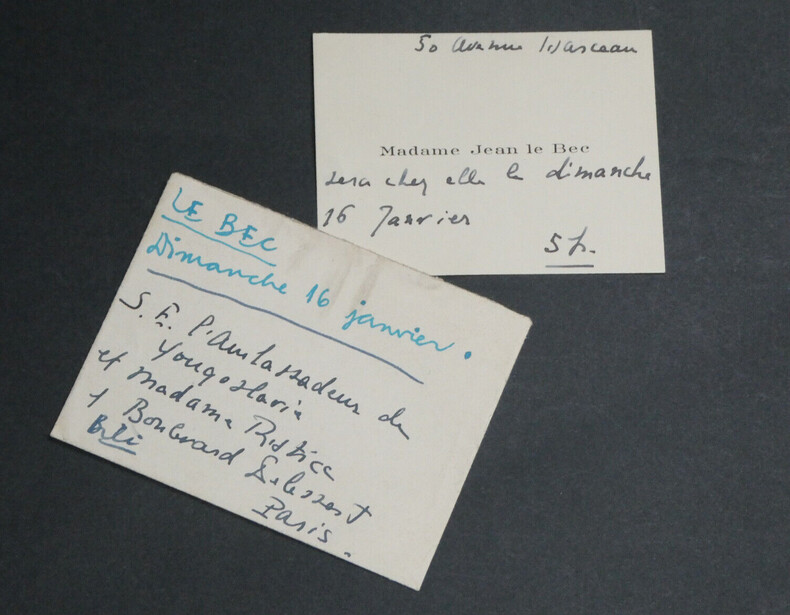 50 Avenue Marceau
Madame Jean le Bec
sera chez elle le dimanche
16 Janvier
5 h.
LE BEC
Dimanche 16 janvier.
S. E. l'Ambassadeur de
Yougoslavie
et Madame Ristica
1 Boulevard Delessert
Paris.